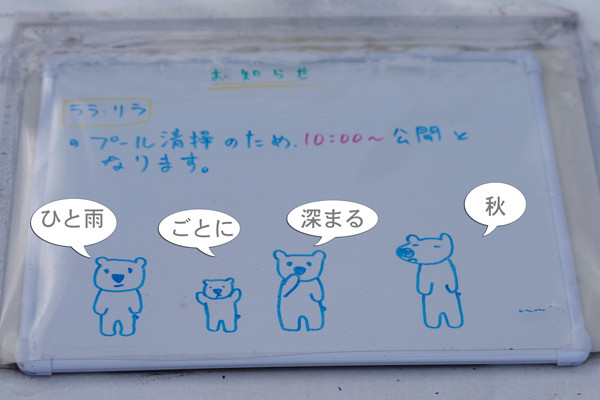 お知らせ
ララ・リラ
・プール清掃のため、10:00〜 公開と
なります。
ひと雨
ごとに
深まる
秋